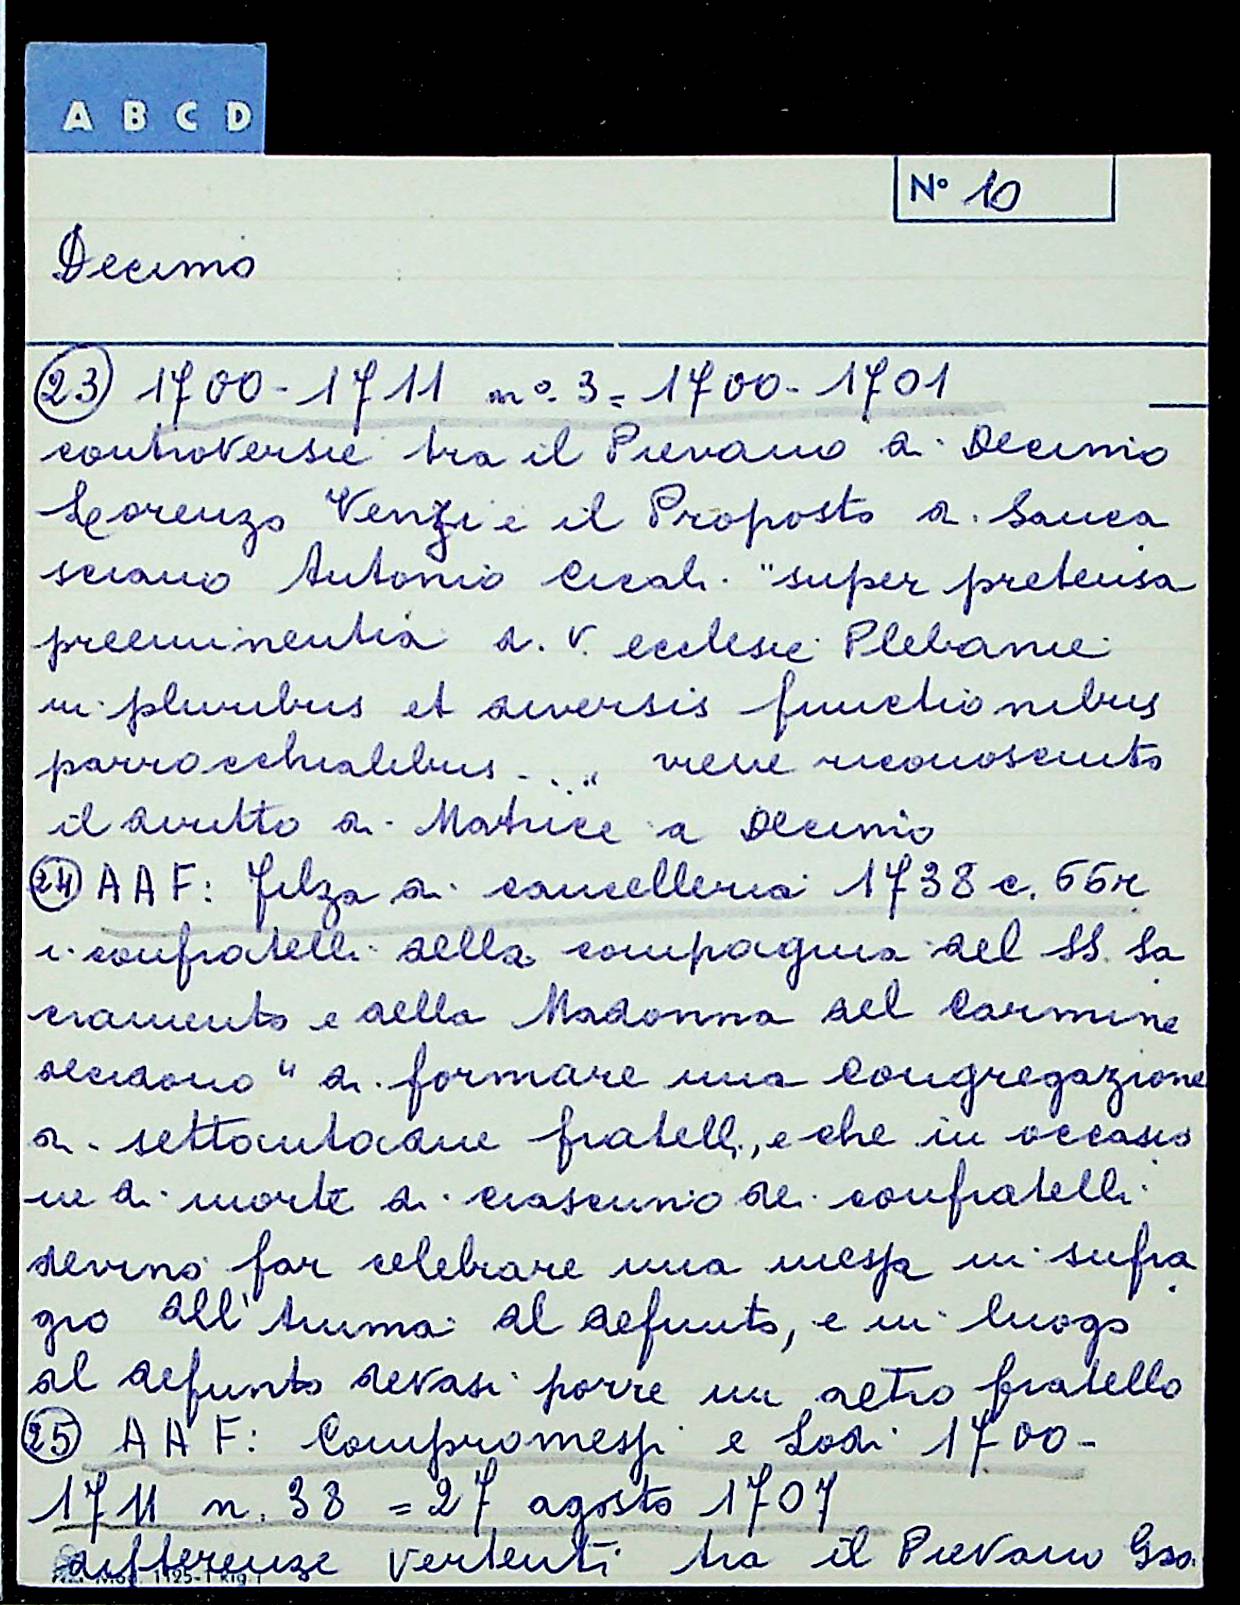 A B C D
N° 10
Decimo
23 1700-1711 n°. 3 = 1700-1701
controversie tra il Pievano di Decimo
Lorenzo Venzi e il Proposto di Sanca
sciano Antonio Cicali "super pretensa
preeminentia d. v. ecclesie Plebanie
in pluribus et diversis functionibus
parrocchialibus ..." viene riconosciuto
il diritto di Matrice a Decimo
24 AAF: Filza di cancelleria 1738 c. 66r
i confratelli della compagnia del SS. Sa
cramento e della Madonna del Carmine
decidono "di formare una Congregazione
di settantadue fratelli, e che in occasio
ne di morte di ciascuno dei confratelli
devino far celebrare una messa in sufra
gio all'Anima del defunto, e in luogo
del defunto devasi porre un altro fratello
25 AAF: Compromessi e Lodi 1700-
1711 n. 38 = 27 agosto 1707
differenze vertenti tra il Pievano